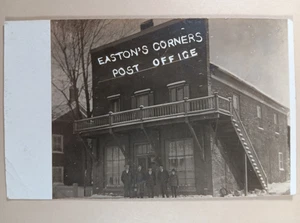 EASTON'S CORNERS
POST OFFICE